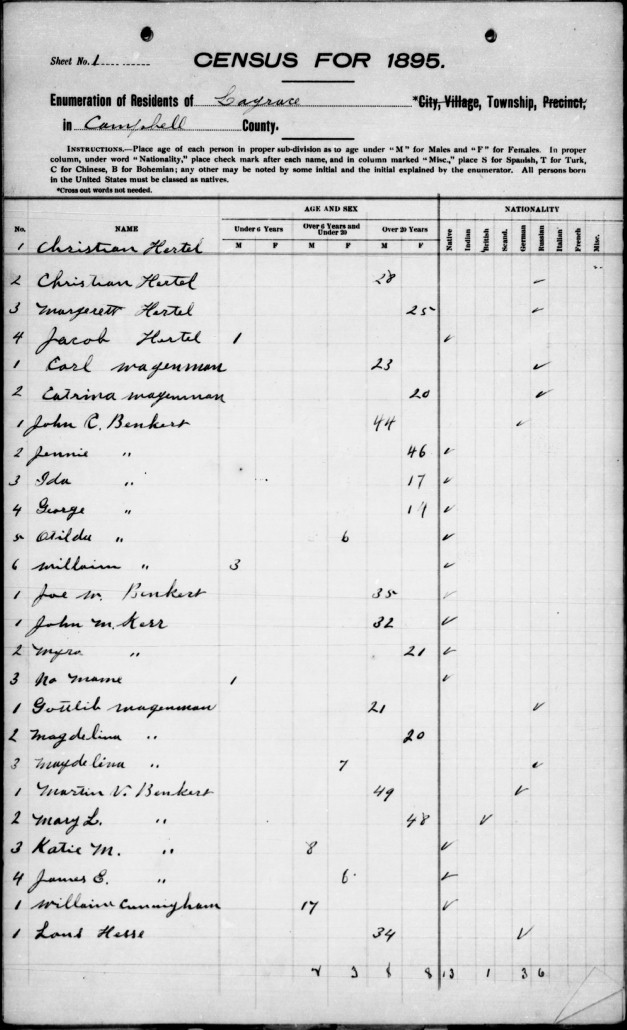 Sheet No. 1
CENSUS FOR 1895.
Enumeration of Residents of Lagrace *City, Village, Township, Precinct,
in Campbell County.
INSTRUCTIONS.—Place age of each person in proper sub-division as to age under "M" for Males and "F" for Females. In proper
column, under word "Nationality," place check mark after each name, and in column marked "Misc.," place S for Spanish, T for Turk,
C for Chinese, B for Bohemian; any other may be noted by some initial and the initial explained by the enumerator. All persons born
in the United States must be classed as natives.
*Cross out words not needed.
AGE AND SEX NATIONALITY
No. NAME Under 6 Years Over 6 Years and Under 20 Over 20 Years Native Indian British Scand. German Russian Italian French Misc.
M F M F M F
1 Christian Hertel
2 Christian Hertel 28 ✓
3 Margerett Hertel 25 ✓
4 Jacob Hertel 1 ✓
1 Carl Wagenman 23 ✓
2 Catrina Wagenman 20 ✓
1 John C. Benkert 44 ✓
2 Jennie " 46 ✓
3 Ida " 17 ✓
4 George " 14 ✓
5 Otilda " 6 ✓
6 Willaim " 3 ✓
1 Joe W. Benkert 35 ✓
1 John M. Kerr 32 ✓
2 Myra " 21 ✓
3 No Name 1 ✓
1 Gottlib Wagenman 21 ✓
2 Magdelina " 20
3 Magdelina " 7 ✓
1 Martin V. Benkert 49 ✓
2 Mary L. " 48 ✓
3 Katie M. " 8 ✓
4 James E. " 6 ✓
1 Willaim Cunnigham 17 ✓
1 Louis Hesse 34 ✓
2 3 8 8 13 1 3 6